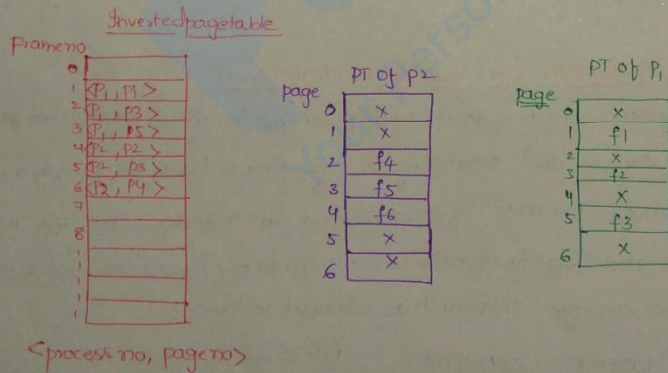 Inverted page table
Frame no
0
1 <P1, P1>
2 <P1, P3>
3 <P1, P5>
4 <P2, P2>
5 <P2, P3>
6 <P2, P4>
7
8
<process no, page no>
PT of P2
page
0 x
1 x
2 f4
3 f5
4 f6
5 x
6 x
PT of P1
page
0 x
1 f1
2 x
3 f2
4 x
5 f3
6 x